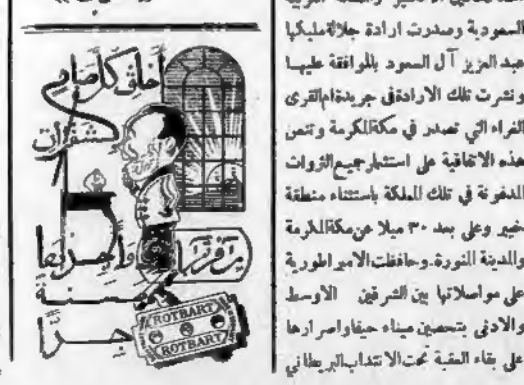 السعودية وصدرت ارادة جلالة مليكها
عبد العزيز آل السعود بالموافقة عليها
ونشرت تلك الارادة في جريدة ام القرى
الغراء التي تصدر في مكة المكرمة وتنص
هذه الاتفاقية على استثمار جميع الثروات
المدفونة في تلك المملكة باستثناء منطقة
خيبر وعلى بعد ٣٠ ميلا عن مكة المكرمة
والمدينة المنورة. وحافظت الامبراطورية
على مواصلاتها بين الشرقين الاوسط
والادنى بتحصين ميناء حيفا واصرارها
على بقاء العقبة تحت الانتداب البريطاني
أخلق كل صباح
شفرات
واحدة
جدا
ROTBART
ROTBART